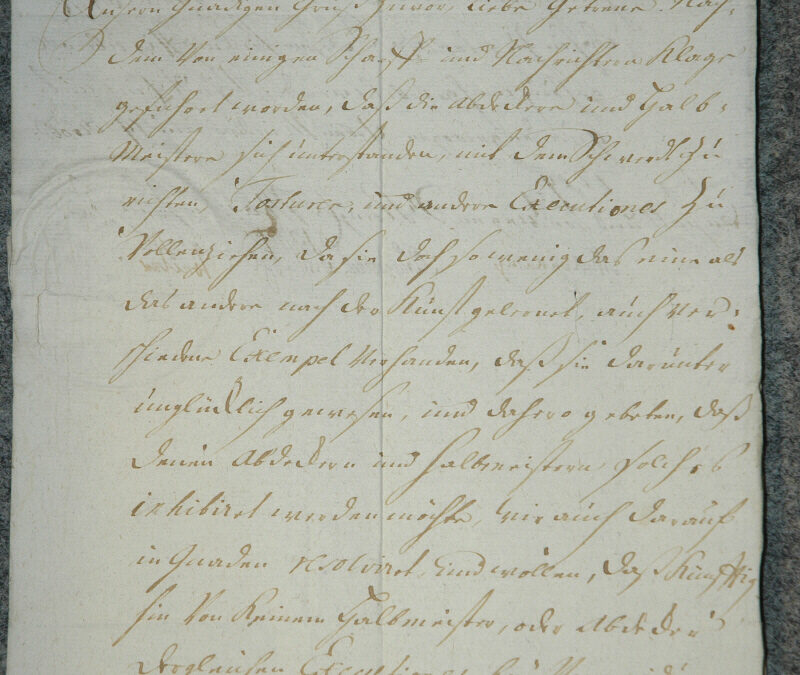 Unsern Gnädigen Gruß zuvor, Liebe Getreue. Nach-
dem Von einigen Scharff und Nachrichtern Klage
geführet worden, daß die Abdeckere und Halb-
Meistere sich unterstanden, mit dem Schwerdt zu
richten, Torturen, und andere Executiones zu
Vollenziehen, da sie doch so wenig das eine als
das andere nach der Kunst gelernet, auch ver-
schiedene Exempel Vorhanden, daß sie darunter
unglücklich gewesen, und dahero gebeten, daß
denen Abdeckern und Halbmeistern, solches
inhibiret werden möchte, wir auch darauf
in Gnaden resolviret, und wollen, daß Künfftig
hin Von Keinem Halbmeister, oder Abdecker
dergleichen Executiones